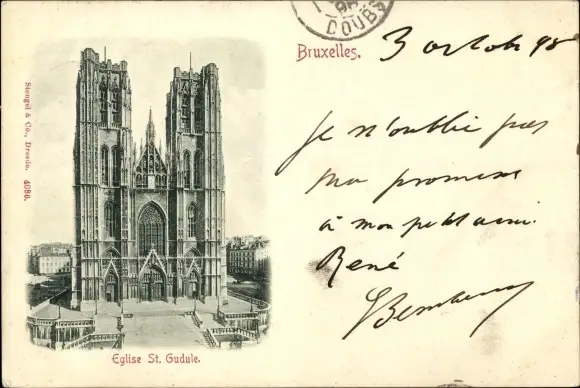 DOUB
Bruxelles.
3 octobre 98
Je n'oublie pas
ma promesse
à mon petit ami.
René
Stengel & Co., Dresda. 4086.
Eglise St. Gudule.